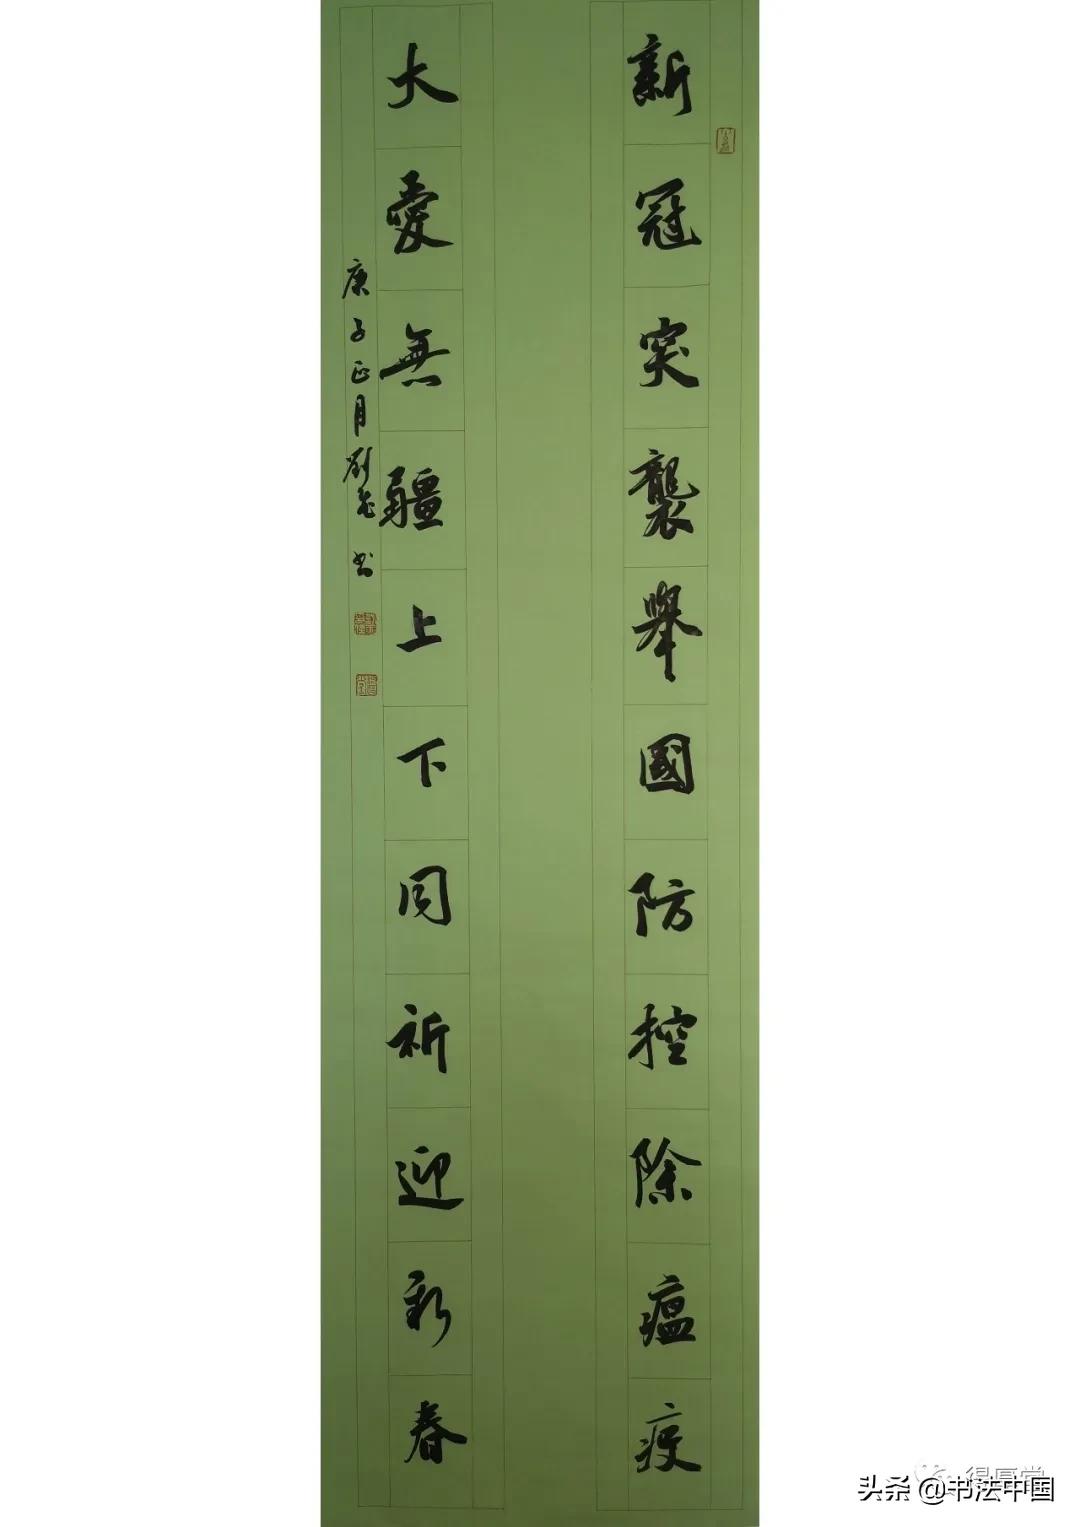 新冠突襲舉國防控除瘟疫
大愛無疆上下同祈迎新春
庚子正月劉飛书
得厚堂
头条 @书法中国